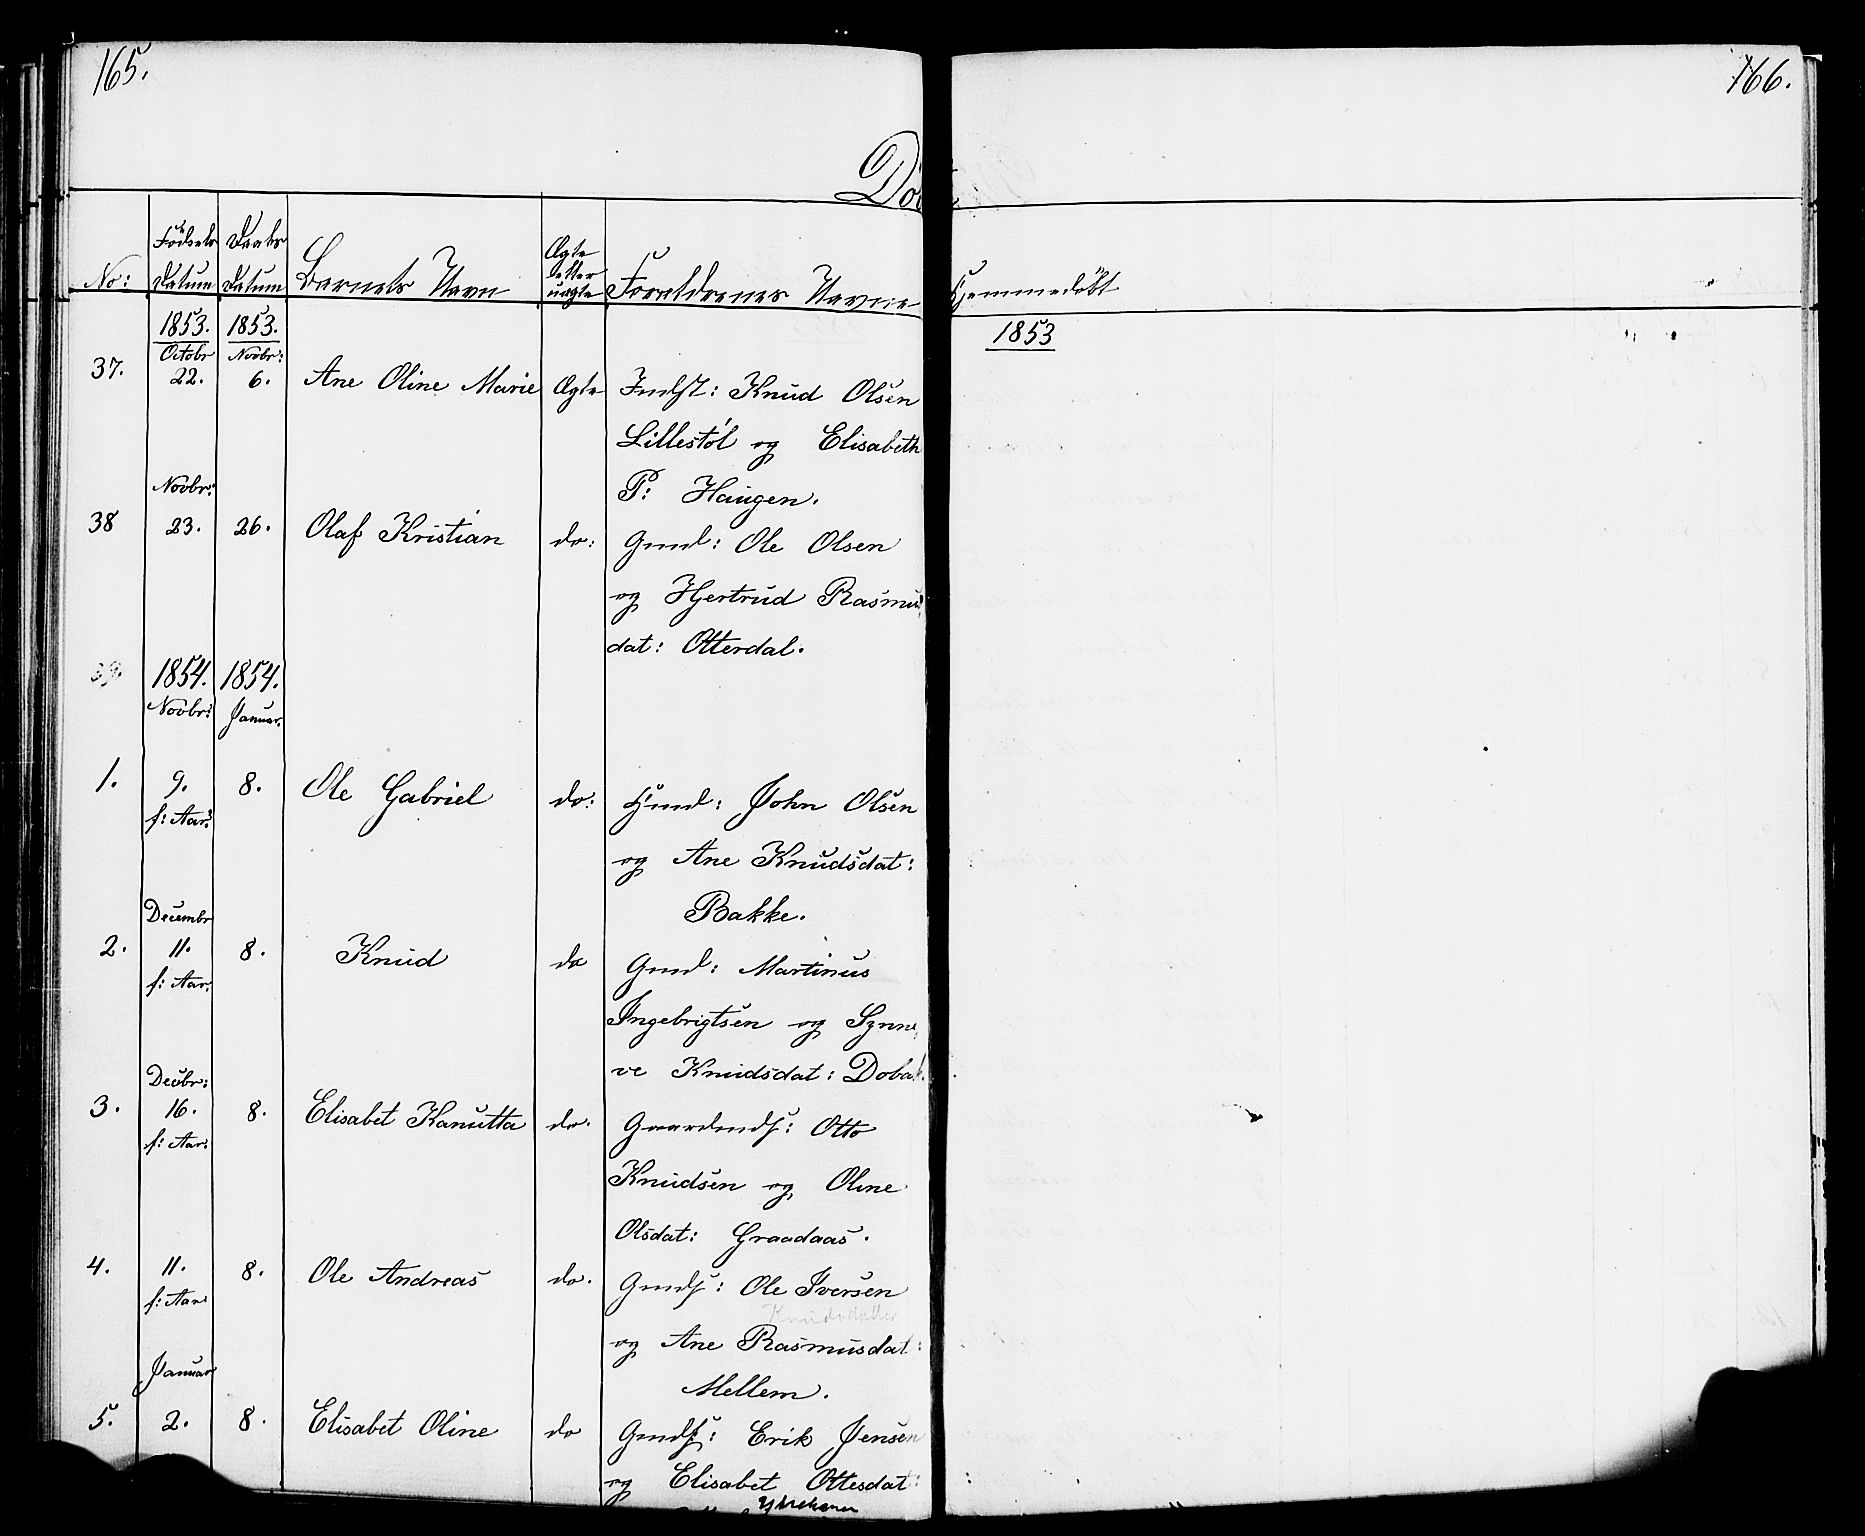 165.
166.
Dö
No: Fødsels Datum Daabs Datum Barnets Navn Ægte eller uægte Foreldrenes Navne Hjemmedöbt
1853. 1853. 1853
Octobr Novbr:
37. 22. 6. Ane Oline Marie Ægte Indst: Knud Olsen
Lillestöl og Elisabeth
P: Haugen.
Novbr:
38 23. 26. Olaf Kristian do: Gmd: Ole Olsen
og Hjertrud Rasmus
dat: Otterdal.
39. 1854. 1854.
Novbr: Januar.
1. 9. 8. Ole Gabriel do: Hmd: John Olsen
f: Aar:
og Ane Knudsdat:
Bakke.
Decembr
2. 11. 8. Knud do Gmd: Martinus
f: Aar.
Ingebrigtsen og Synne
ve Knudsdat:
Decbr:
3. 16. 8. Elisabet Kanutta do. Gaardmds: Otto
f: Aar:
Knudsen og Oline
Olsdat: Graadaas.
4. 11. 8. Ole Andreas do. Gmds: Ole Iversen
f: Aar
Knudsdatter
og Ane Rasmusdat:
Mellem.
Januar
5. 2. 8. Elisabet Oline do Gmds: Erik Jensen
og Elisabet Ottesdat: